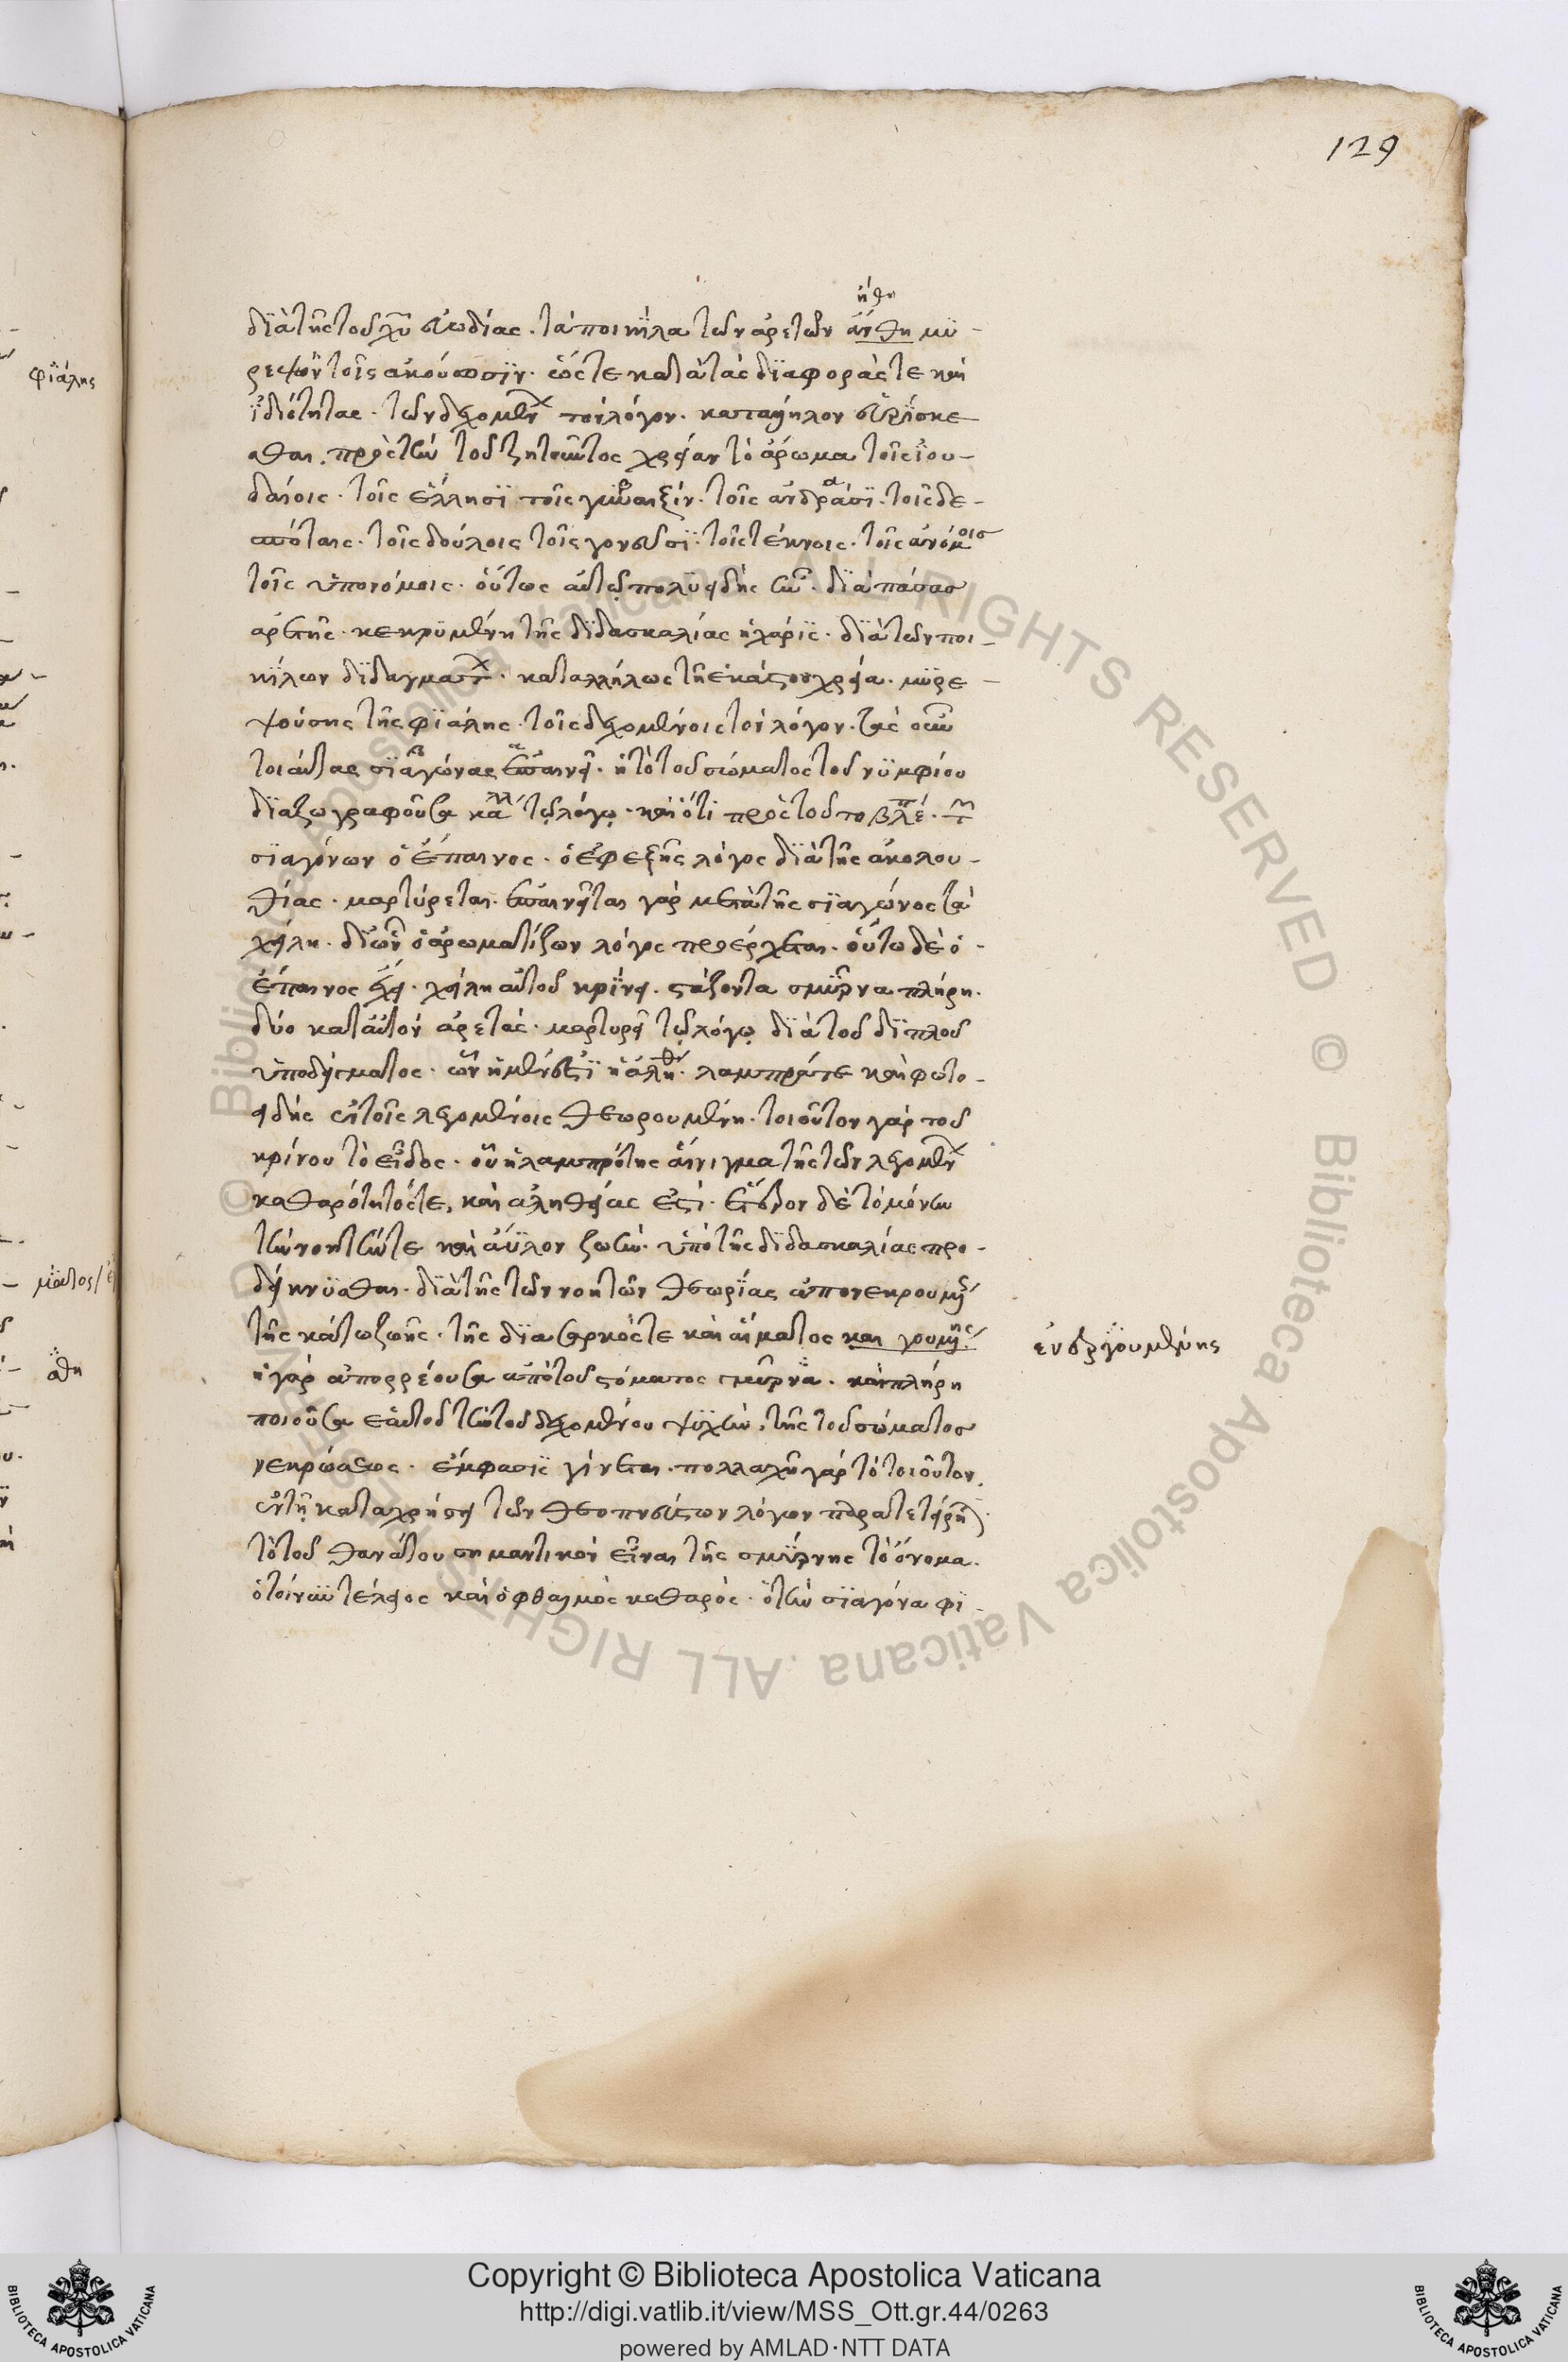 129
ἤθη
διὰ τῆς τοῦ χυ εὐωδίας. τὰ ποικίλα τῶν ἀρετῶν ἄνθη μυ-
φιάλης
ρεψῶν τοῖς ἀκούουσιν. ὥστε κατὰ τὰς διαφοράς τε καὶ
ἰδιότητας. τῶν δεχομένων τὸν λόγον. κατάλληλον εὑρίσκε
σθαι. πρὸς τὴν τοῦ ζητοῦντος χρείαν τὸ ἄρωμα τοῖς ἰου-
δαίοις. τοῖς ἕλλησι τοῖς γυναιξίν. τοῖς ἀνδράσι. τοῖς δε-
σπόταις. τοῖς δούλοις τοῖς γονεῦσι. τοῖς τέκνοις. τοῖς ἀνόμοις
τοῖς ὑπονόμοις. οὕτως αὐτῷ πολυειδὴς ἦν. διὰ πάσας
ἀρετῆς. κεκρυμένη τῆς διδασκαλίας ἡ χάρις. διὰ τῶν ποι-
κίλων διδαγμάτων. καταλλήλως τῇ ἑκάστου χρεία. μυρε-
ψούσης τῆς φιάλης. τοῖς δεχομένοις τὸν λόγον. τὰς οὖν
τοιαύτας σιαγόνας ἐπαινεῖ. ἡ τὸ τοῦ σώματος τοῦ νυμφίου
διαζωγραφοῦσα κάλλος τῷ λόγῳ. καὶ ὅτι πρὸς τοῦτο βλέπει. τῶν
σιαγόνων ὁ ἔπαινος. ὁ ἐφεξῆς λόγος διὰ τῆς ἀκολου-
θίας. μαρτύρεται. ἐπαινεῖται γὰρ μετὰ τῆς σιαγώνος τὰ
χείλη. δι ὧν ὁ ἀρωματίζων λόγος προέρχεται. οὕτω δὲ ὁ
ἔπαινος ἔχει. χείλη αὐτοῦ κρίνει. στάζοντα σμύρνα πλήρη.
δύο κατ αὐτὸν ἀρετάς. μαρτυρεῖ τῷ λόγῳ διὰ τοῦ διπλοῦ
ὑποδείγματος. ὧν ἡ μέν ἐστι ἡ ἀλήθεια. λαμπρά τε καὶ φωτο-
ειδὴς ἐν τοῖς λεγομένοις θεωρουμένη. τοιοῦτον γὰρ τοῦ
κρίνου τὸ εἶδος. οὗ ἡ λαμπρότης αἴνιγμα τῆς τῶν λεγομένων
καθαρότητός τε, καὶ ἀληθείας ἐστί. ἕτερον δὲ τὸ μόνην
τὴν νοητήν τε καὶ ἄϋλον ζωήν. ὑπὸ τῆς διδασκαλίας προ-
δείκνυσθαι. διὰ τῆς τῶν νοητῶν θεωρίας ἀπονεκρουμένης
τῆς κάτω ζωῆς. τῆς διὰ σαρκός τε καὶ αἵματος και γουμένης.
ἐνεργουμένης
ἡ γὰρ ἀπορρέουσα ἀπὸ τοῦ στόματος σμύρνα. καὶ πλήρη
ποιοῦσα ἑαυτοῦ τὴν τοῦ δεχομένου ψυχήν. τῆς τοῦ σώματος
νεκρώσεως. ἔμφασις γίνεται. πολλαχῆ γὰρ τὸ τοιοῦτον
ἐν τῇ καταχρήσει τῶν θεοπνεύστων λόγων παρατετήρηται
τὸ τοῦ θανάτου σημαντικὸν εἶναι τῆς σμύρνης τὸ ὄνομα.
ὁ τοίνυν τέλειος καὶ ὀφθαλμὸς καθαρὸς. ὁ τὴν σιαγόνα φι-
Copyright © Biblioteca Apostolica Vaticana
http://digi.vatlib.it/view/MSS_Ott.gr.44/0263
powered by AMLAD·NTT DATA